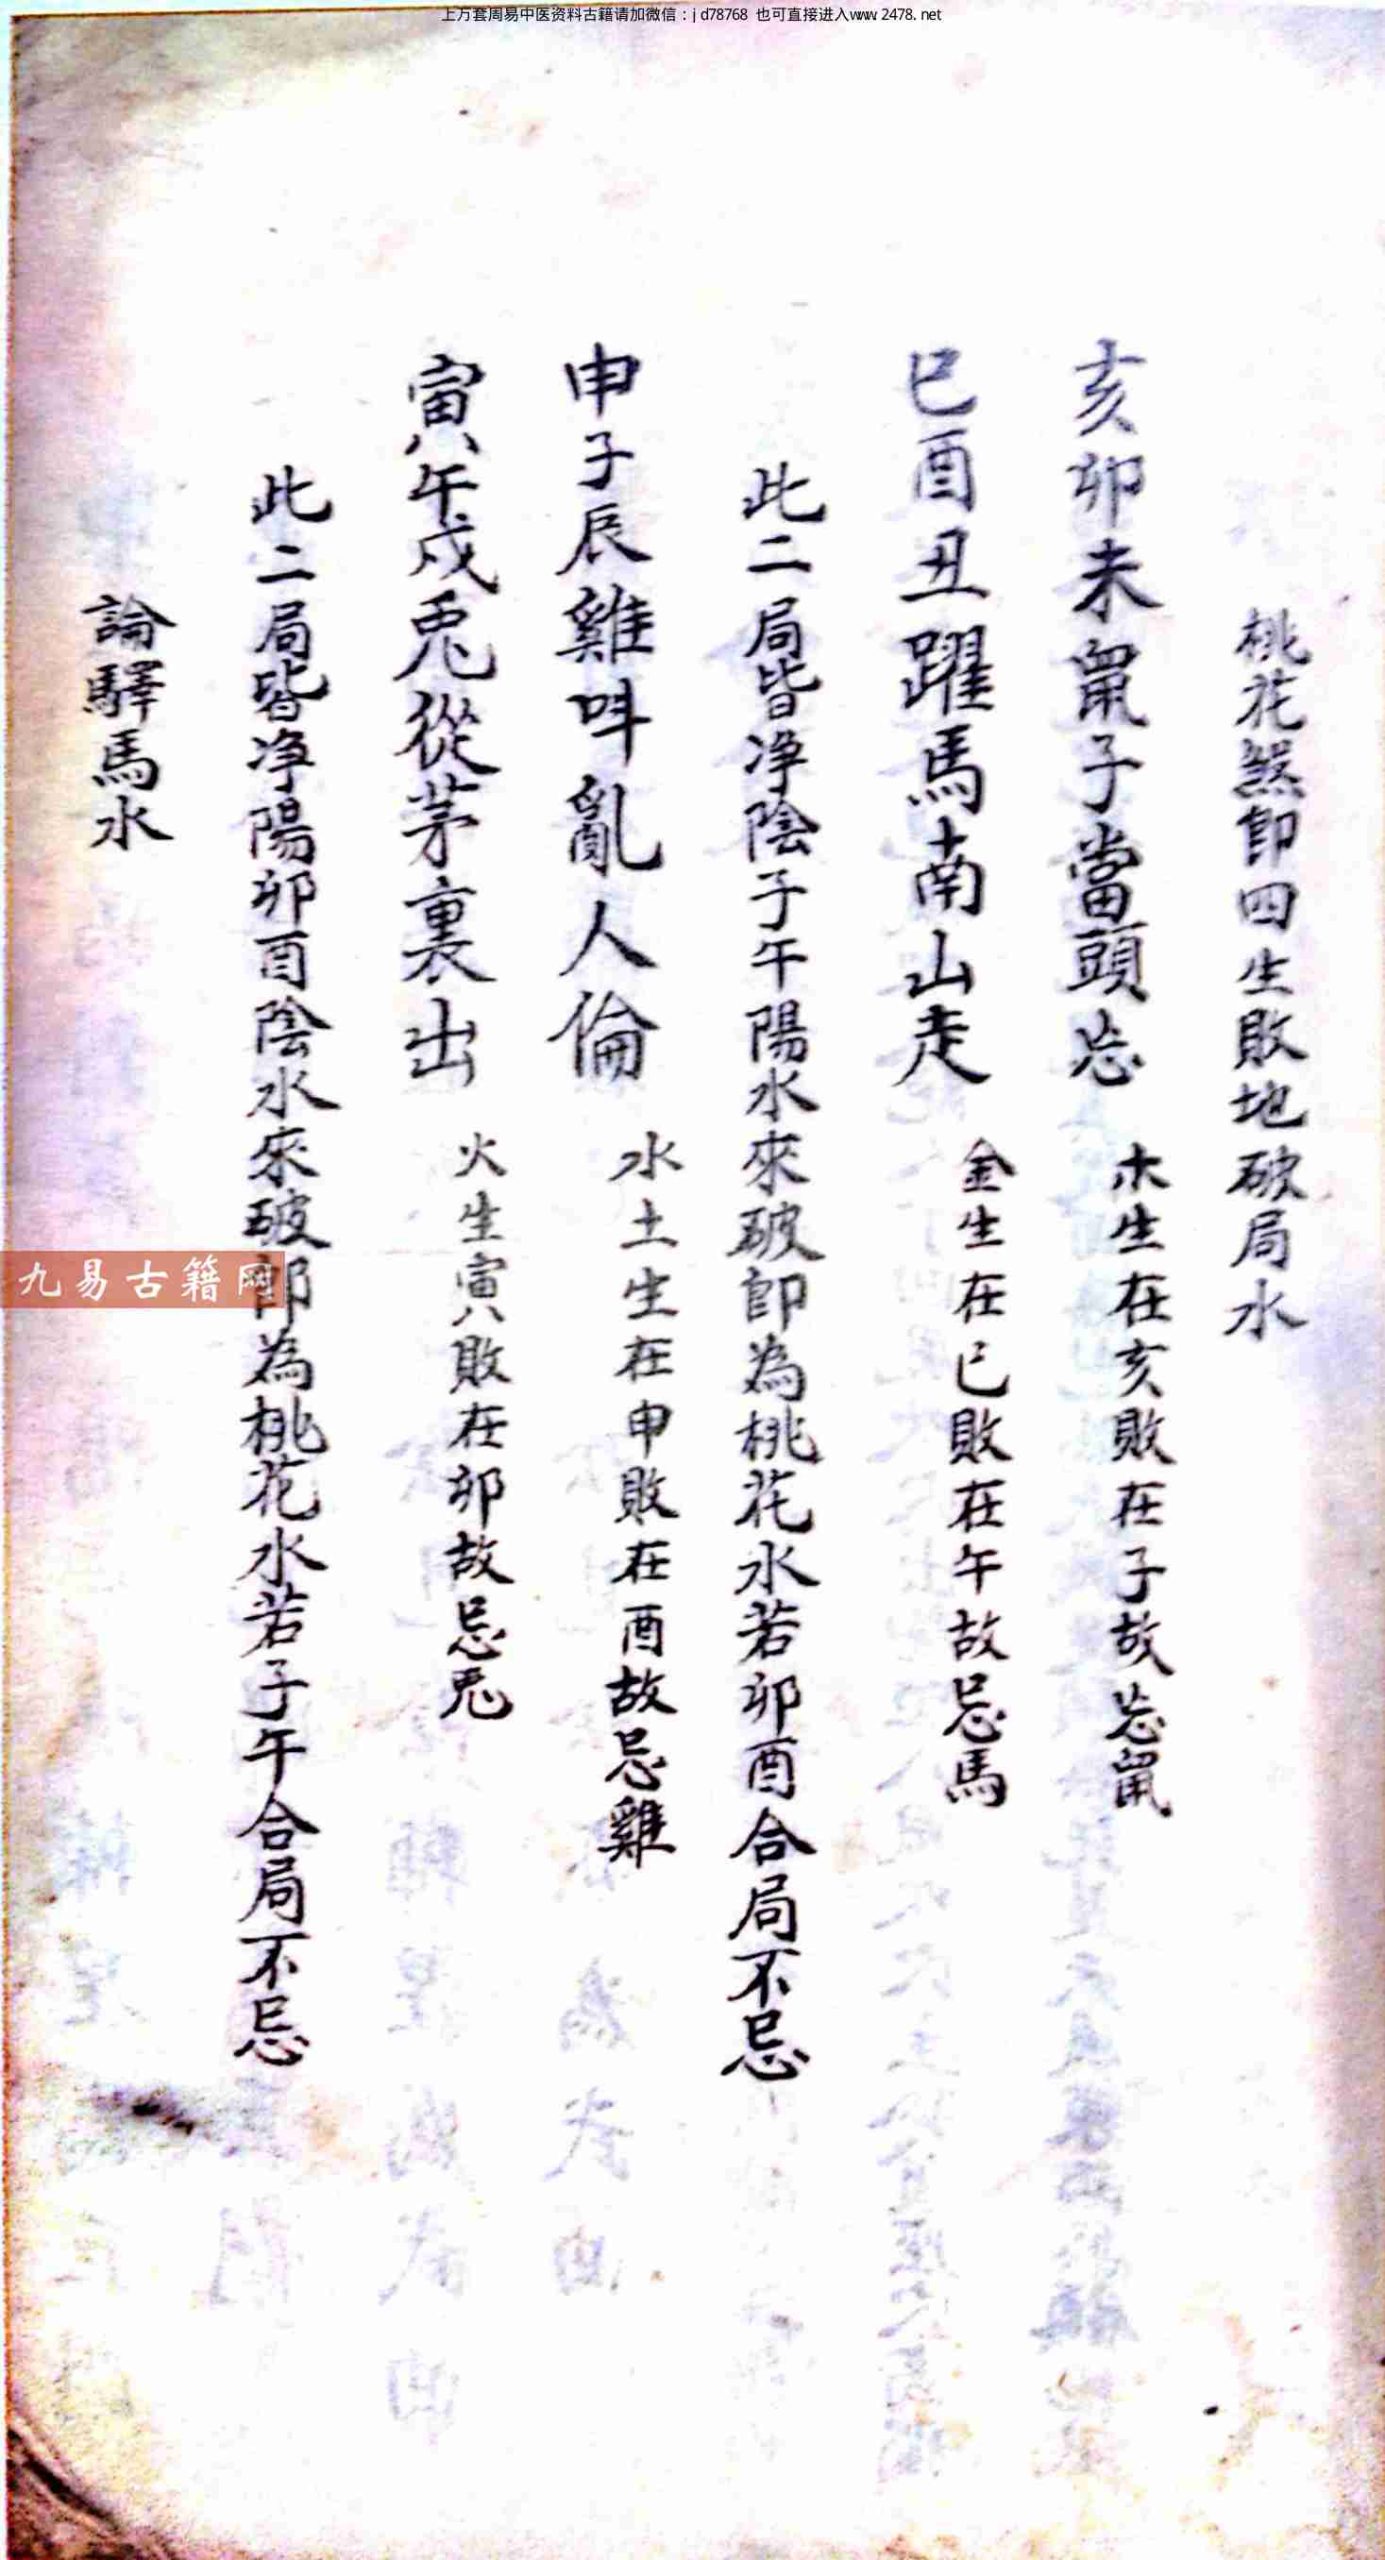 上万套周易中医资料古籍请加微信：jd78768 也可直接进入www.2478.net
桃花煞即四生敗地破局水
亥卯未鼠子當頭忌 木生在亥敗在子故忌鼠
巳酉丑躍馬南山走 金生在巳敗在午故忌馬
此二局皆净陰子午陽水來破即為桃花水若卯酉合局不忌
申子辰雞叫亂人倫 水土生在申敗在酉故忌雞
寅午戌兎從茅裏出 火生寅敗在卯故忌兎
此二局皆净陽卯酉陰水來破即為桃花水若子午合局不忌
論驛馬水
九易古籍网